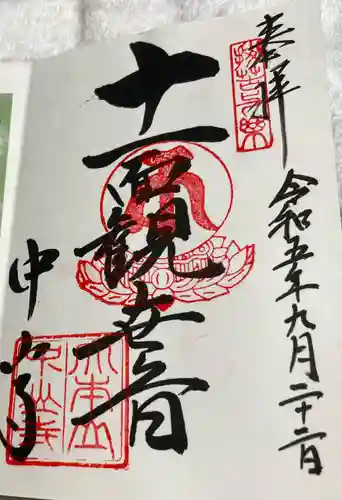 奉拝
令和五年九月二十二日
十一面観世音
中山寺